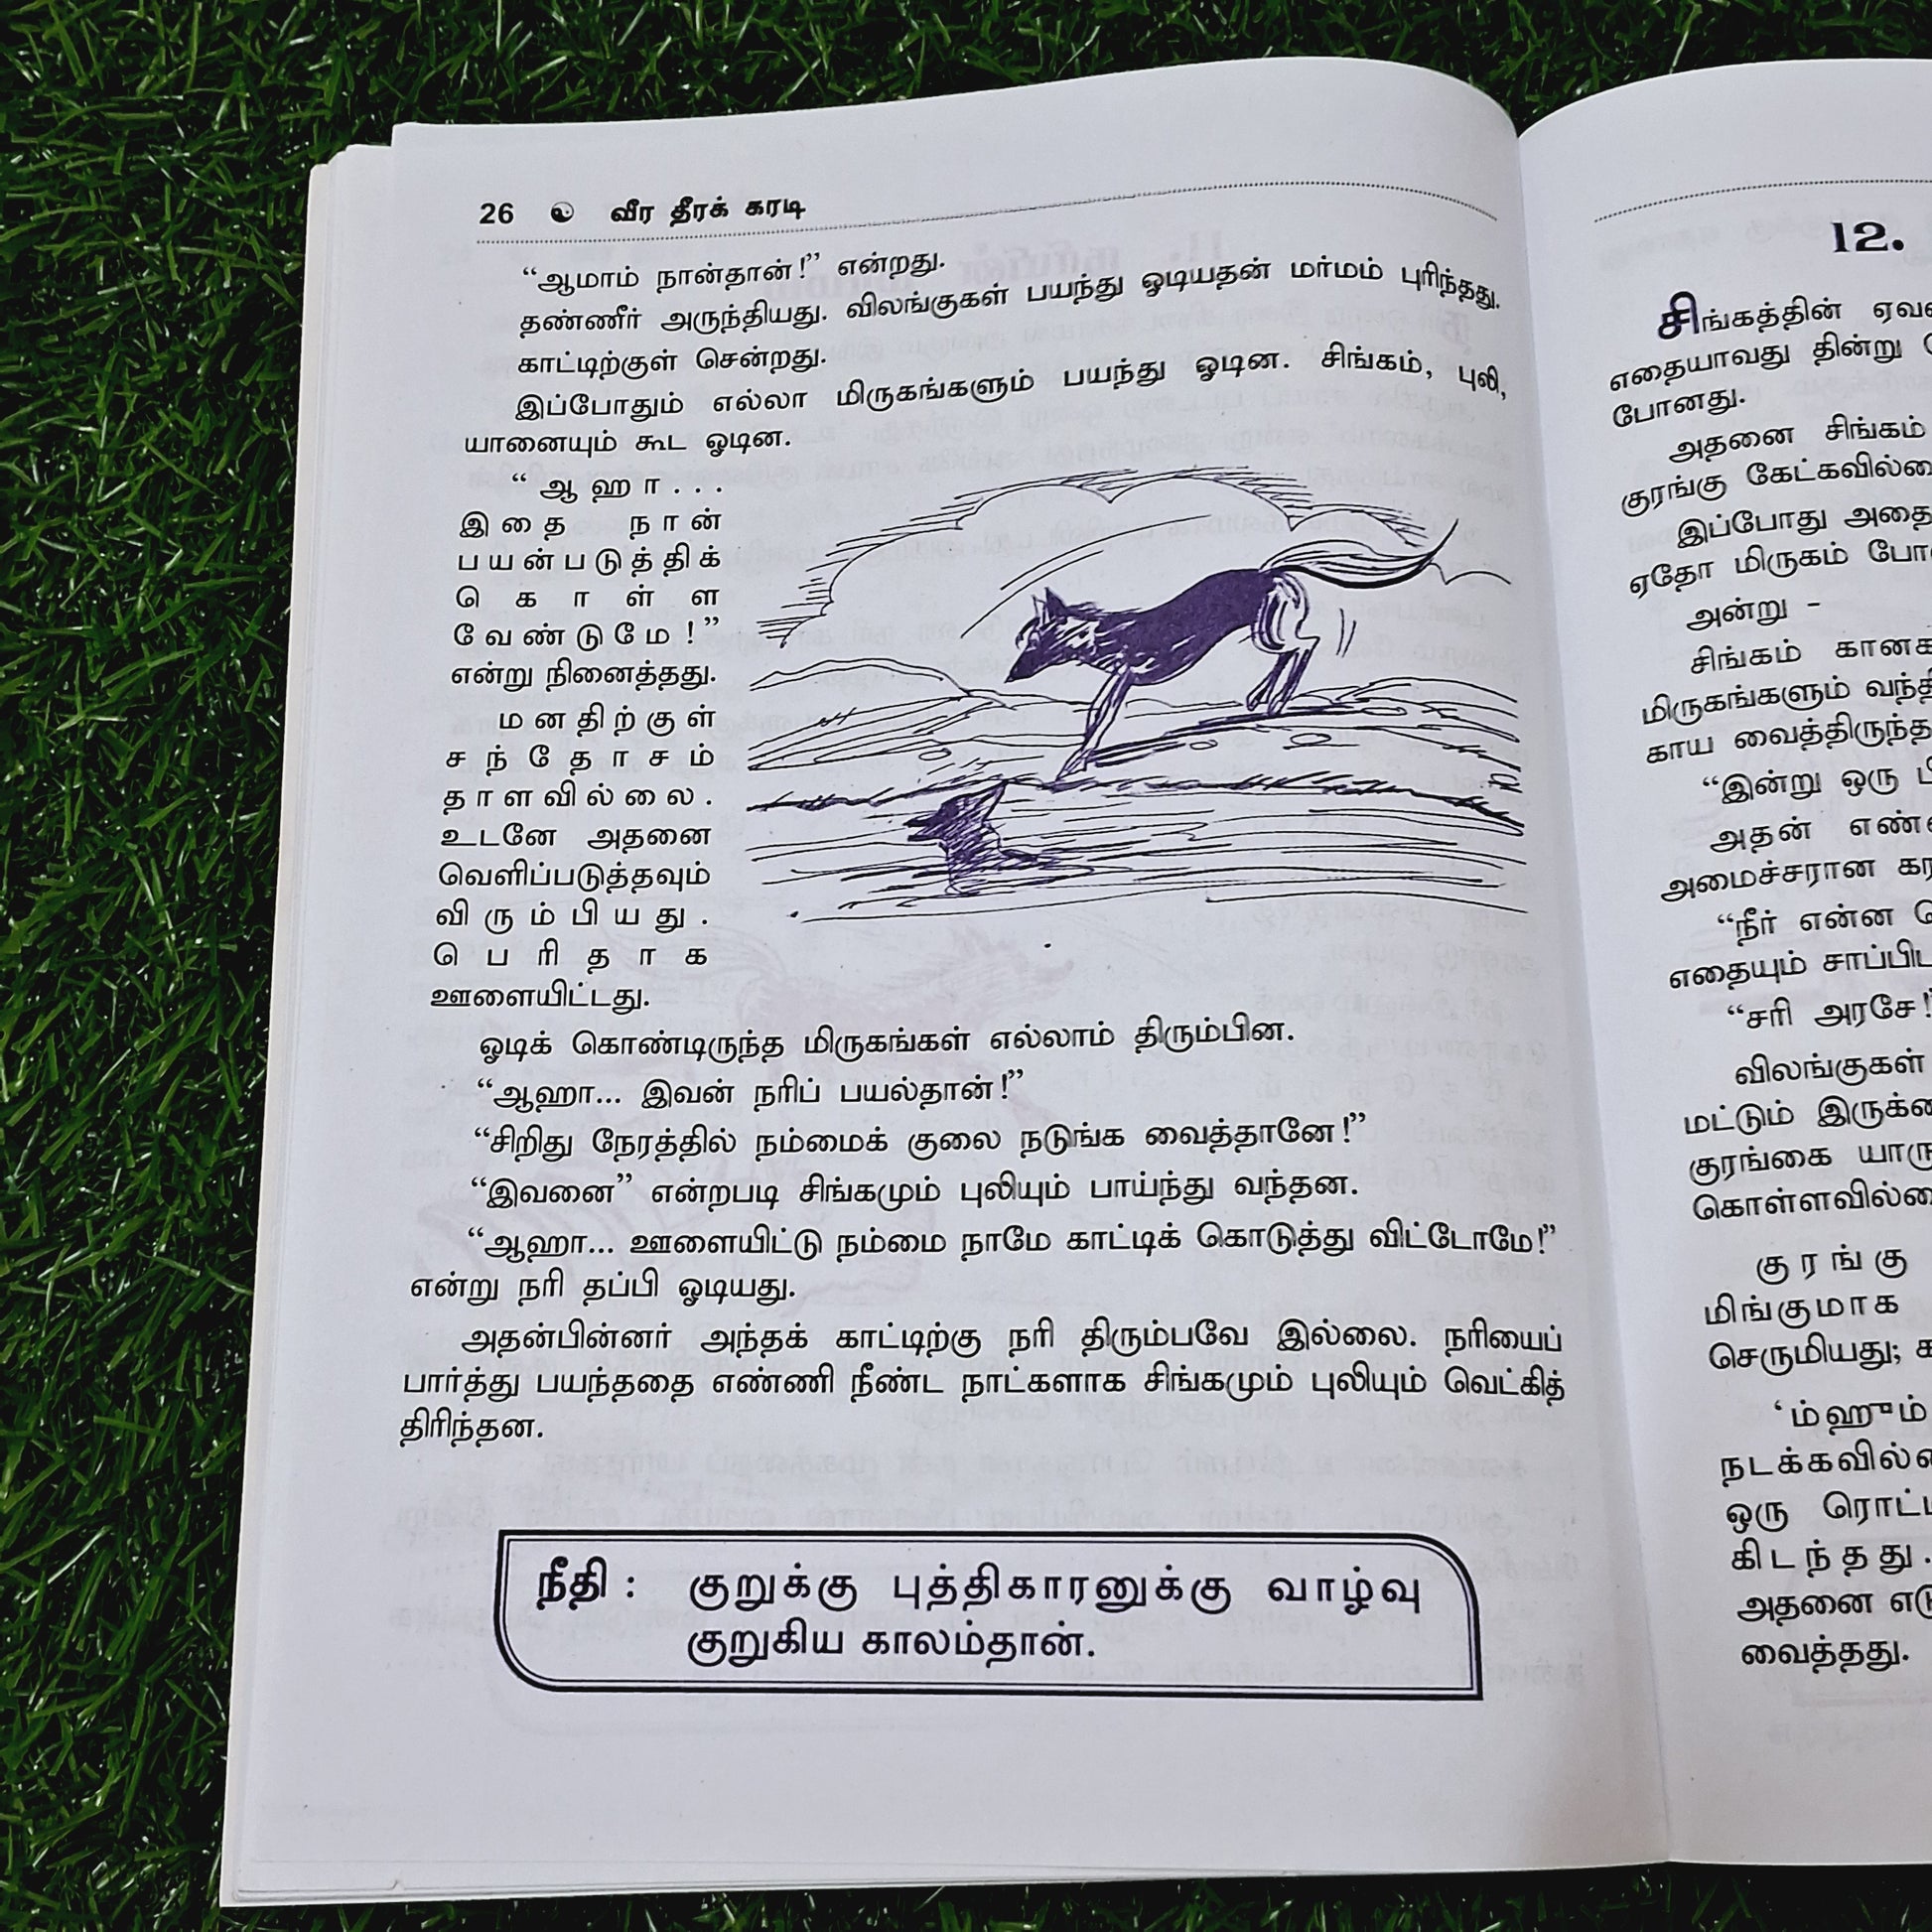 26 ☯ வீர தீரக் கரடி
“ஆமாம் நான்தான்!” என்றது.
தண்ணீர் அருந்தியது. விலங்குகள் பயந்து ஓடியதன் மர்மம் புரிந்தது.
காட்டிற்குள் சென்றது.
இப்போதும் எல்லா மிருகங்களும் பயந்து ஓடின. சிங்கம், புலி,
யானையும் கூட ஓடின.
“ஆஹா...
இதை நான்
பயன்படுத்திக்
கொள்ள
வேண்டுமே!”
என்று நினைத்தது.
மனதிற்குள்
சந்தோசம்
தாளவில்லை.
உடனே அதனை
வெளிப்படுத்தவும்
விரும்பியது.
பெரிதாக
ஊளையிட்டது.
ஓடிக் கொண்டிருந்த மிருகங்கள் எல்லாம் திரும்பின.
“ஆஹா... இவன் நரிப் பயல்தான்!”
“சிறிது நேரத்தில் நம்மைக் குலை நடுங்க வைத்தானே!”
“இவனை” என்றபடி சிங்கமும் புலியும் பாய்ந்து வந்தன.
“ஆஹா... ஊளையிட்டு நம்மை நாமே காட்டிக் கொடுத்து விட்டோமே!”
என்று நரி தப்பி ஓடியது.
அதன்பின்னர் அந்தக் காட்டிற்கு நரி திரும்பவே இல்லை. நரியைப்
பார்த்து பயந்ததை எண்ணி நீண்ட நாட்களாக சிங்கமும் புலியும் வெட்கித்
திரிந்தன.
நீதி : குறுக்கு புத்திகாரனுக்கு வாழ்வு
குறுகிய காலம்தான்.
12.
சிங்கத்தின்
எதையாவது தின்று
போனது.
அதனை சிங்கம்
குரங்கு
இப்போது
ஏதோ மிருகம்
அன்று -
சிங்கம்
மிருகங்களும்
காய
“இன்று ஒரு
அதன்
அமைச்சரான
“நீர் என்ன
எதையும்
“சரி அரசே!
விலங்குகள்
மட்டும்
குரங்கை
குரங்கு
மிங்குமாக
செருமியது;
‘ம்ஹும்
ஒரு
கிடந்தது.
அதனை
வைத்தது.